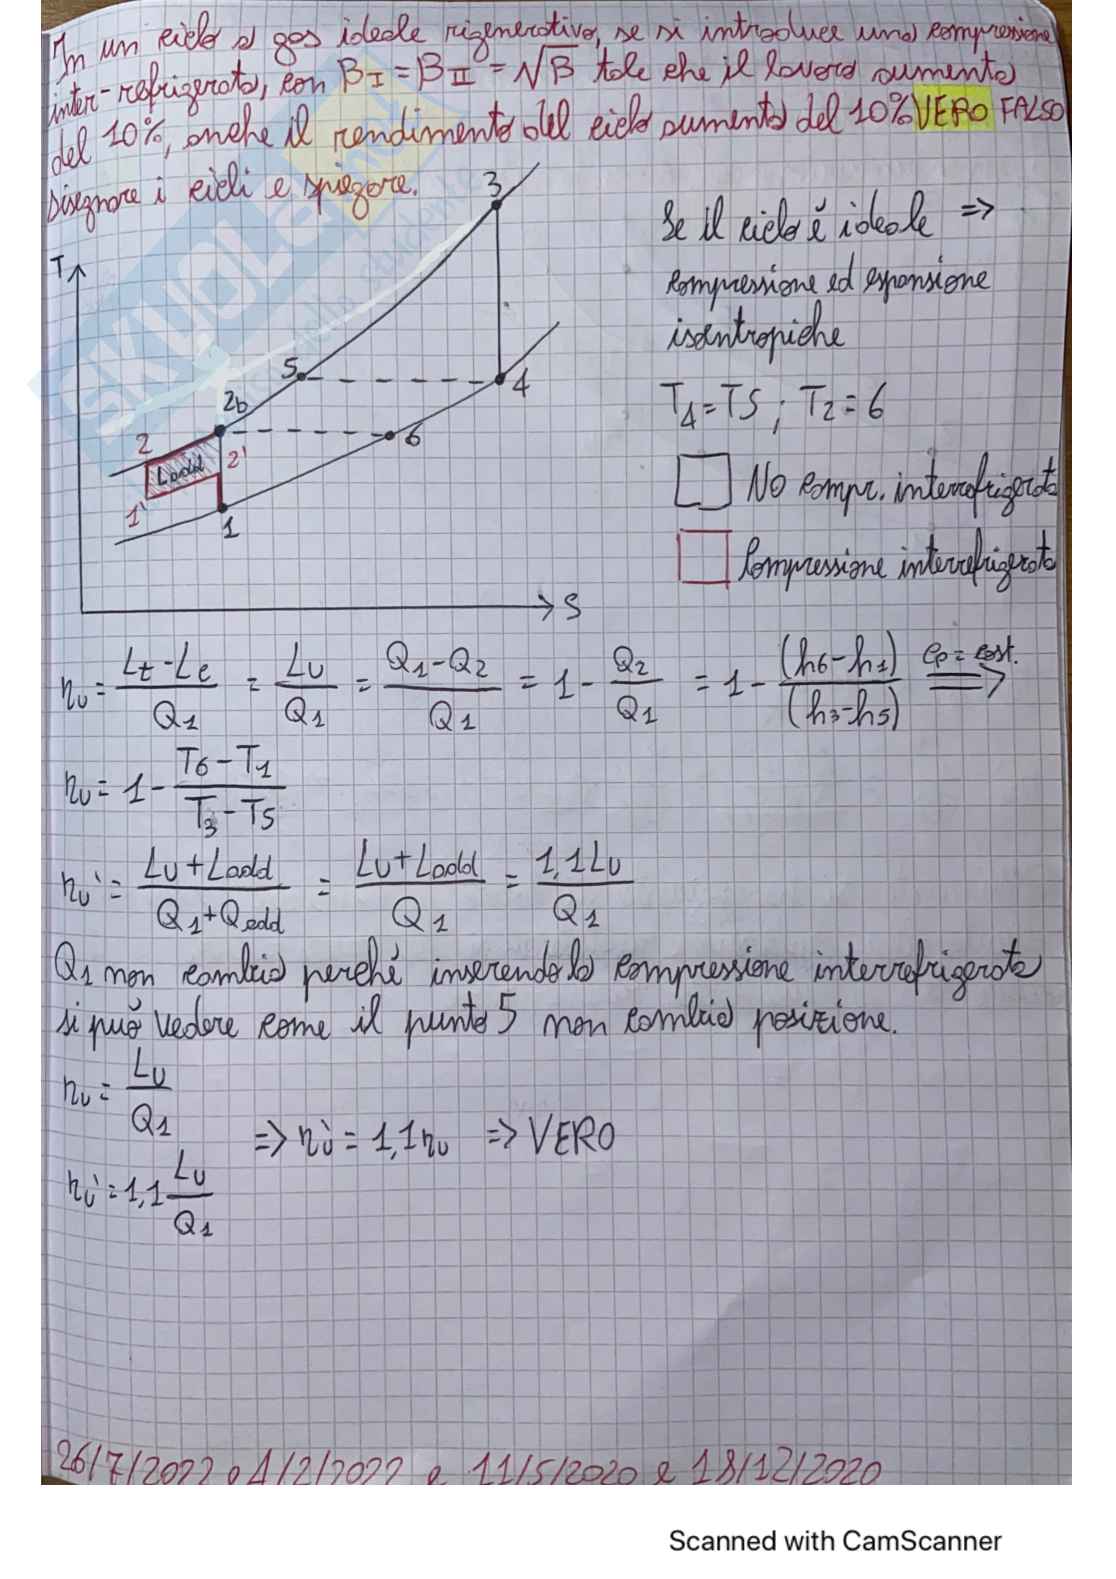 In un ciclo a gas ideale rigenerativo, se si introduce una compressione
inter-refrigerata, con βI = βII = √β tale che il lavoro aumenta
del 10%, anche il rendimento del ciclo aumenta del 10% VERO FALSO
Disegnare i cicli e spiegare.
SKUOLA
T
S
3
5
4
2b
6
2
Ladd
2'
1'
1
Se il ciclo è ideale =>
compressione ed espansione
isentropiche
T4=T5 ; T2=6
No compr. interrefrigerata
Compressione interrefrigerata
ηu = (Lt-Lc)/Q1 = Lu/Q1 = (Q1-Q2)/Q1 = 1 - Q2/Q1 = 1 - (h6-h1)/(h3-h5) cp=cost. =>
ηu = 1 - (T6-T1)/(T3-T5)
ηu' = (Lu+Ladd)/(Q1+Qadd) = (Lu+Ladd)/Q1 = 1,1Lu/Q1
Q1 non cambia perché inserendo la compressione interrefrigerata
si può vedere come il punto 5 non cambia posizione.
ηu = Lu/Q1
=> ηu' = 1,1ηu => VERO
ηu' = 1,1 Lu/Q1
26/7/2022 e 4/2/2022 e 11/5/2020 e 18/12/2020
Scanned with CamScanner